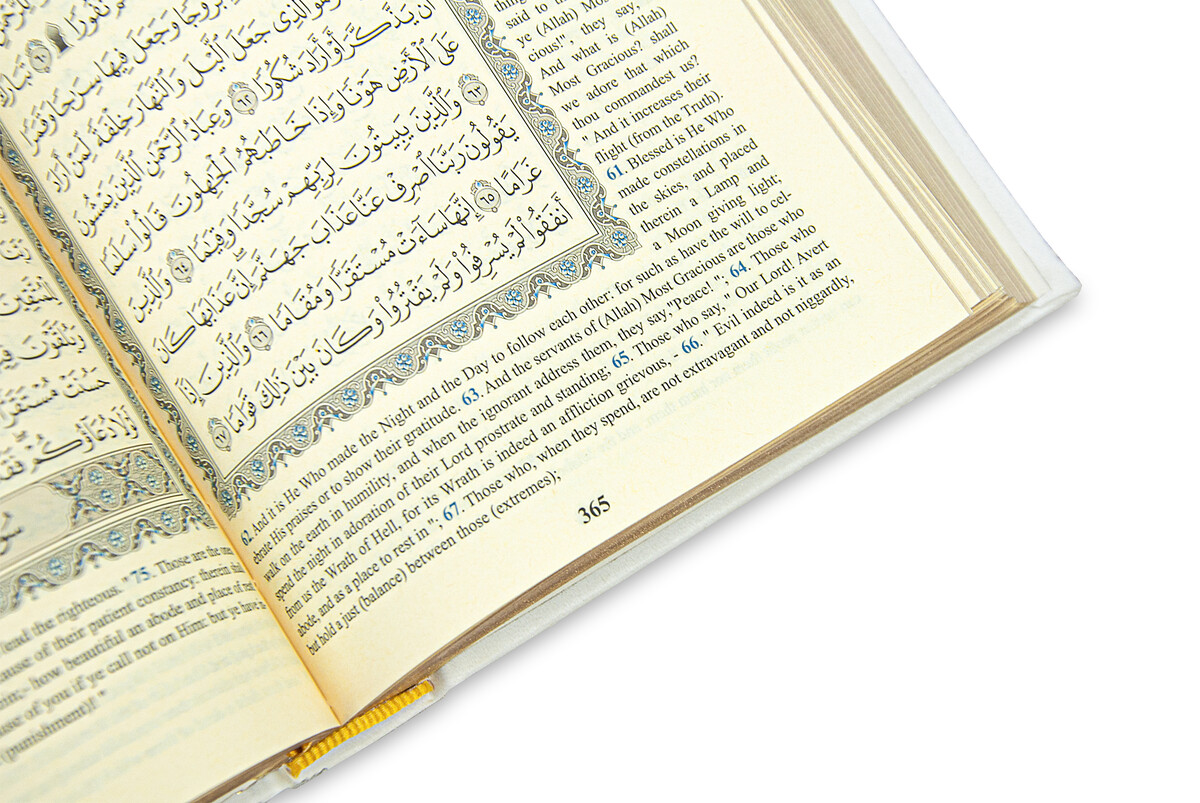 نُفُورًا ٦٠ تَبَارَكَ
بُرُوجًا وَجَعَلَ فِيهَا سِرَاجًا وَقَمَرًا
وَهُوَ الَّذِي جَعَلَ اللَّيْلَ وَالنَّهَارَ خِلْفَةً لِّمَنْ أَرَادَ
أَن يَذَّكَّرَ أَوْ أَرَادَ شُكُورًا ٦٢ وَعِبَادُ الرَّحْمَٰنِ الَّذِينَ يَمْشُونَ
عَلَى الْأَرْضِ هَوْنًا وَإِذَا خَاطَبَهُمُ الْجَاهِلُونَ قَالُوا سَلَامًا
٦٣ وَالَّذِينَ يَبِيتُونَ لِرَبِّهِمْ سُجَّدًا وَقِيَامًا ٦٤ وَالَّذِينَ
يَقُولُونَ رَبَّنَا اصْرِفْ عَنَّا عَذَابَ جَهَنَّمَ إِنَّ عَذَابَهَا كَانَ
غَرَامًا ٦٥ إِنَّهَا سَاءَتْ مُسْتَقَرًّا وَمُقَامًا ٦٦ وَالَّذِينَ إِذَا
أَنفَقُوا لَمْ يُسْرِفُوا وَلَمْ يَقْتُرُوا وَكَانَ بَيْنَ ذَٰلِكَ قَوَامًا ٦٧
said to
ye (Allah) Most
cious!", they say,
And what is (Allah)
Most Gracious? shall
we adore that which
thou commandest us?
" And it increases their
flight (from the Truth).
61. Blessed is He Who
made constellations in
the skies, and placed
therein a Lamp and
a Moon giving light;
62. And it is He Who made the Night and the Day to follow each other: for such as have the will to cel-
ebrate His praises or to show their gratitude. 63. And the servants of (Allah) Most Gracious are those who
walk on the earth in humility, and when the ignorant address them, they say,"Peace! "; 64. Those who
spend the night in adoration of their Lord prostrate and standing; 65. Those who say, " Our Lord! Avert
from us the Wrath of Hell, for its Wrath is indeed an affliction grievous, - 66. " Evil indeed is it as an
abode, and as a place to rest in "; 67. Those who, when they spend, are not extravagant and not niggardly,
but hold a just (balance) between those (extremes);
365
lead the righteous." 75. Those are the
of their patient constancy: therein
how beautiful an abode and place of
of you if ye call not on Him: but ye have
(punishment)! "